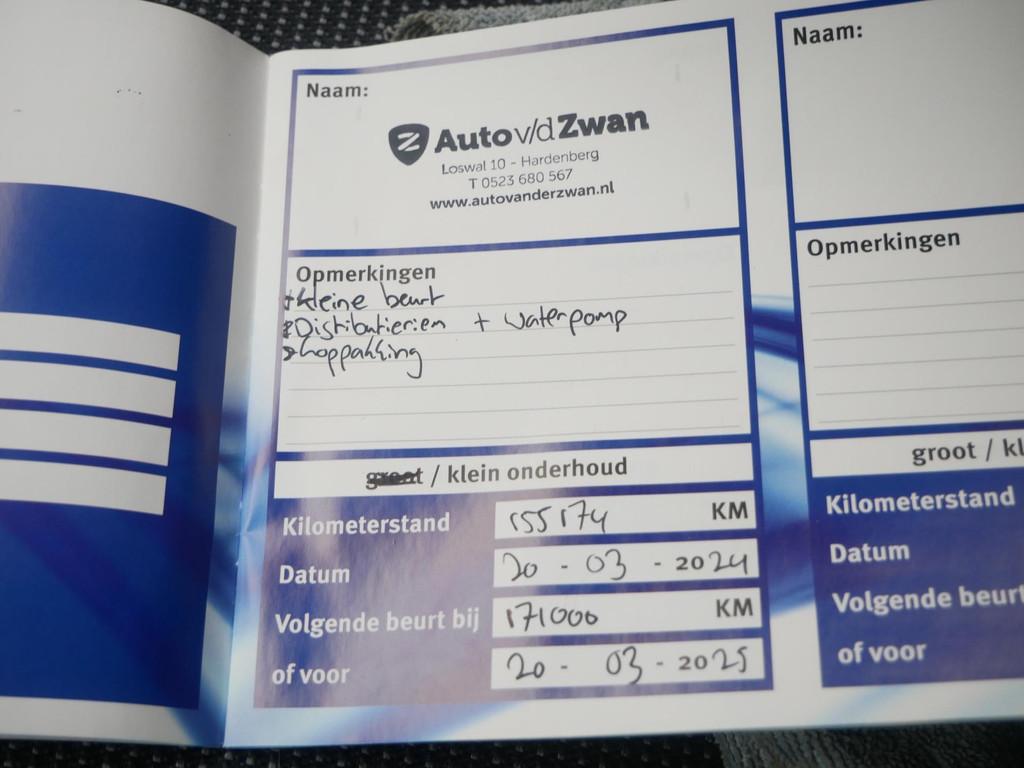 Naam:
Auto v/d Zwan
Loswal 10 - Hardenberg
T 0523 680 567
www.autovanderzwan.nl
Opmerkingen
Kleine beurt
Distributieriem + waterpomp
Koppakking
groot / klein onderhoud
Kilometerstand 155174 KM
Datum 20 - 03 - 2024
Volgende beurt bij 171000 KM
of voor 20 - 03 - 2025
Naam:
Opmerkingen
groot / kl
Kilometerstand
Datum
Volgende beurt
of voor